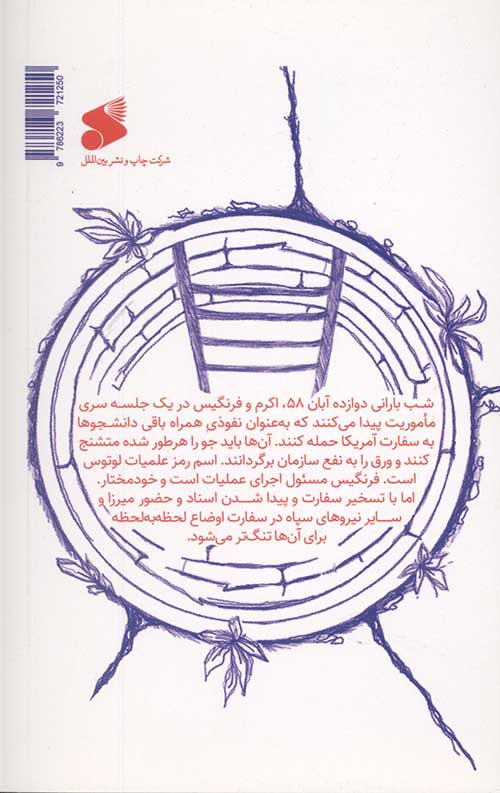 9 786223 721250
شرکت چاپ و نشر بین‌الملل
شب بارانی دوازده آبان ۵۸، اکرم و فرنگیس در یک جلسه سری
مأموریت پیدا می‌کنند که به‌عنوان نفوذی همراه باقی دانشجوها
به سفارت آمریکا حمله کنند. آن‌ها باید جو را هرطور شده متشنج
کنند و ورق را به نفع سازمان برگردانند. اسم رمز علمیات لوتوس
است. فرنگیس مسئول اجرای عملیات است و خودمختار.
اما با تسخیر سفارت و پیدا شدن اسناد و حضور میرزا و
سایر نیروهای سپاه در سفارت اوضاع لحظه‌به‌لحظه
برای آن‌ها تنگ‌تر می‌شود.